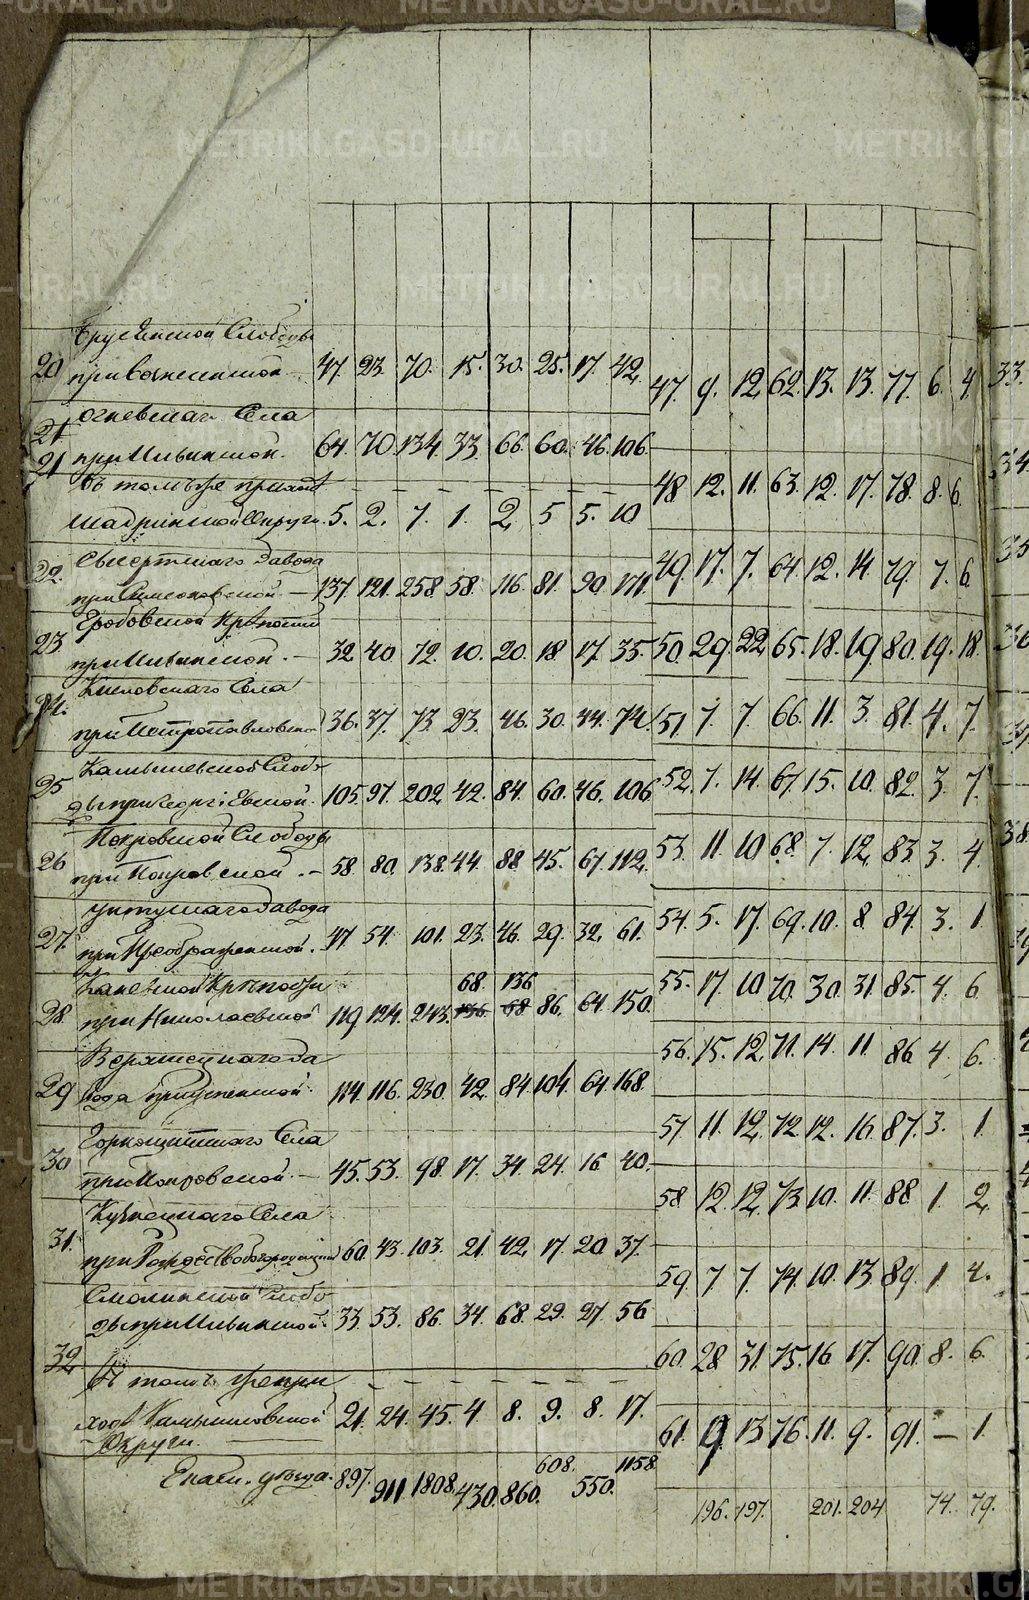 METRIKI.GASO-URAL.RU
20 Слободы
при 47. 23. 70. 15. 30. 25. 17. 42.
47. 9. 12. 62. 13. 13. 77. 6. 4.
33.
21 Села
21 при Ильинской. 64. 70. 134. 33. 66. 60. 46. 106.
48 12. 11. 63. 12. 17. 78. 8. 6.
въ томъ же приходѣ
Шадринской Округи. 5. 2. 7. 1. 2. 5 5. 10
22. Сысертскаго Завода
при 137. 121. 258. 58. 116. 81. 90. 171.
49. 17. 7. 64. 12. 14. 79. 7. 6.
23 Гробовской Крѣпости
при Ильинской. 32. 40 72. 10. 20. 18 17. 35.
50. 29. 22. 65. 18. 19. 80. 19. 18.
24. Села
при Петропавловской 36. 37. 73. 23. 46. 30. 44. 74.
51 7. 7. 66. 11. 3. 81. 4. 7.
25 Камышевской Слобо
ды при Георгіевской. 105. 97. 202. 42. 84. 60. 46. 106
52. 7. 14. 67. 15. 10. 82. 3. 7.
26 Покровской Слободы
при Покровской. 58. 80. 138. 44. 88. 45. 67. 112.
53. 11. 10 68. 7. 12. 83. 3. 4.
38
27. Уктускаго Завода
при Преображенской. 47. 54. 101. 23. 46. 29. 32. 61.
54. 5. 17. 69. 10. 8. 84. 3. 1.
28 Крѣпости 68. 136
при Николаевской 119. 124. 243. 136 68 86. 64. 150.
55. 17. 10 70. 30. 31. 85. 4. 6
29 За
вода при Успенской 114. 116. 230. 42. 84. 104. 64. 168.
56. 15. 12. 71. 14. 11. 86 4. 6.
30 Горнощитскаго Села
при Покровской. 45. 53. 98. 17. 34. 24. 16 40.
57 11. 12. 72. 12. 16. 87. 3. 1
58 12. 12. 73. 10. 11. 88 1. 2.
31. Кузнецкаго Села
при Рождествобогородицкой 60. 43. 103. 21. 42. 17. 20. 37.
59. 7. 7. 74. 10. 13. 89. 1 4.
Смолинской Слобо
ды при Ильинской. 33. 53. 86. 34. 68. 29. 27. 56
32
60. 28 31. 75. 16 17. 90. 8. 6.
Въ томъ же при
ходѣ Камышловской 21. 24. 45. 4 8. 9. 8. 17.
Округи.
61. 9. 13. 76. 11. 9. 91. — 1.
Екатер. уѣзда. 897. 911 1808. 430. 860. 608. 550. 1158
196. 197. 201. 204 74. 79.
METRIKI.GASO-URAL.RU